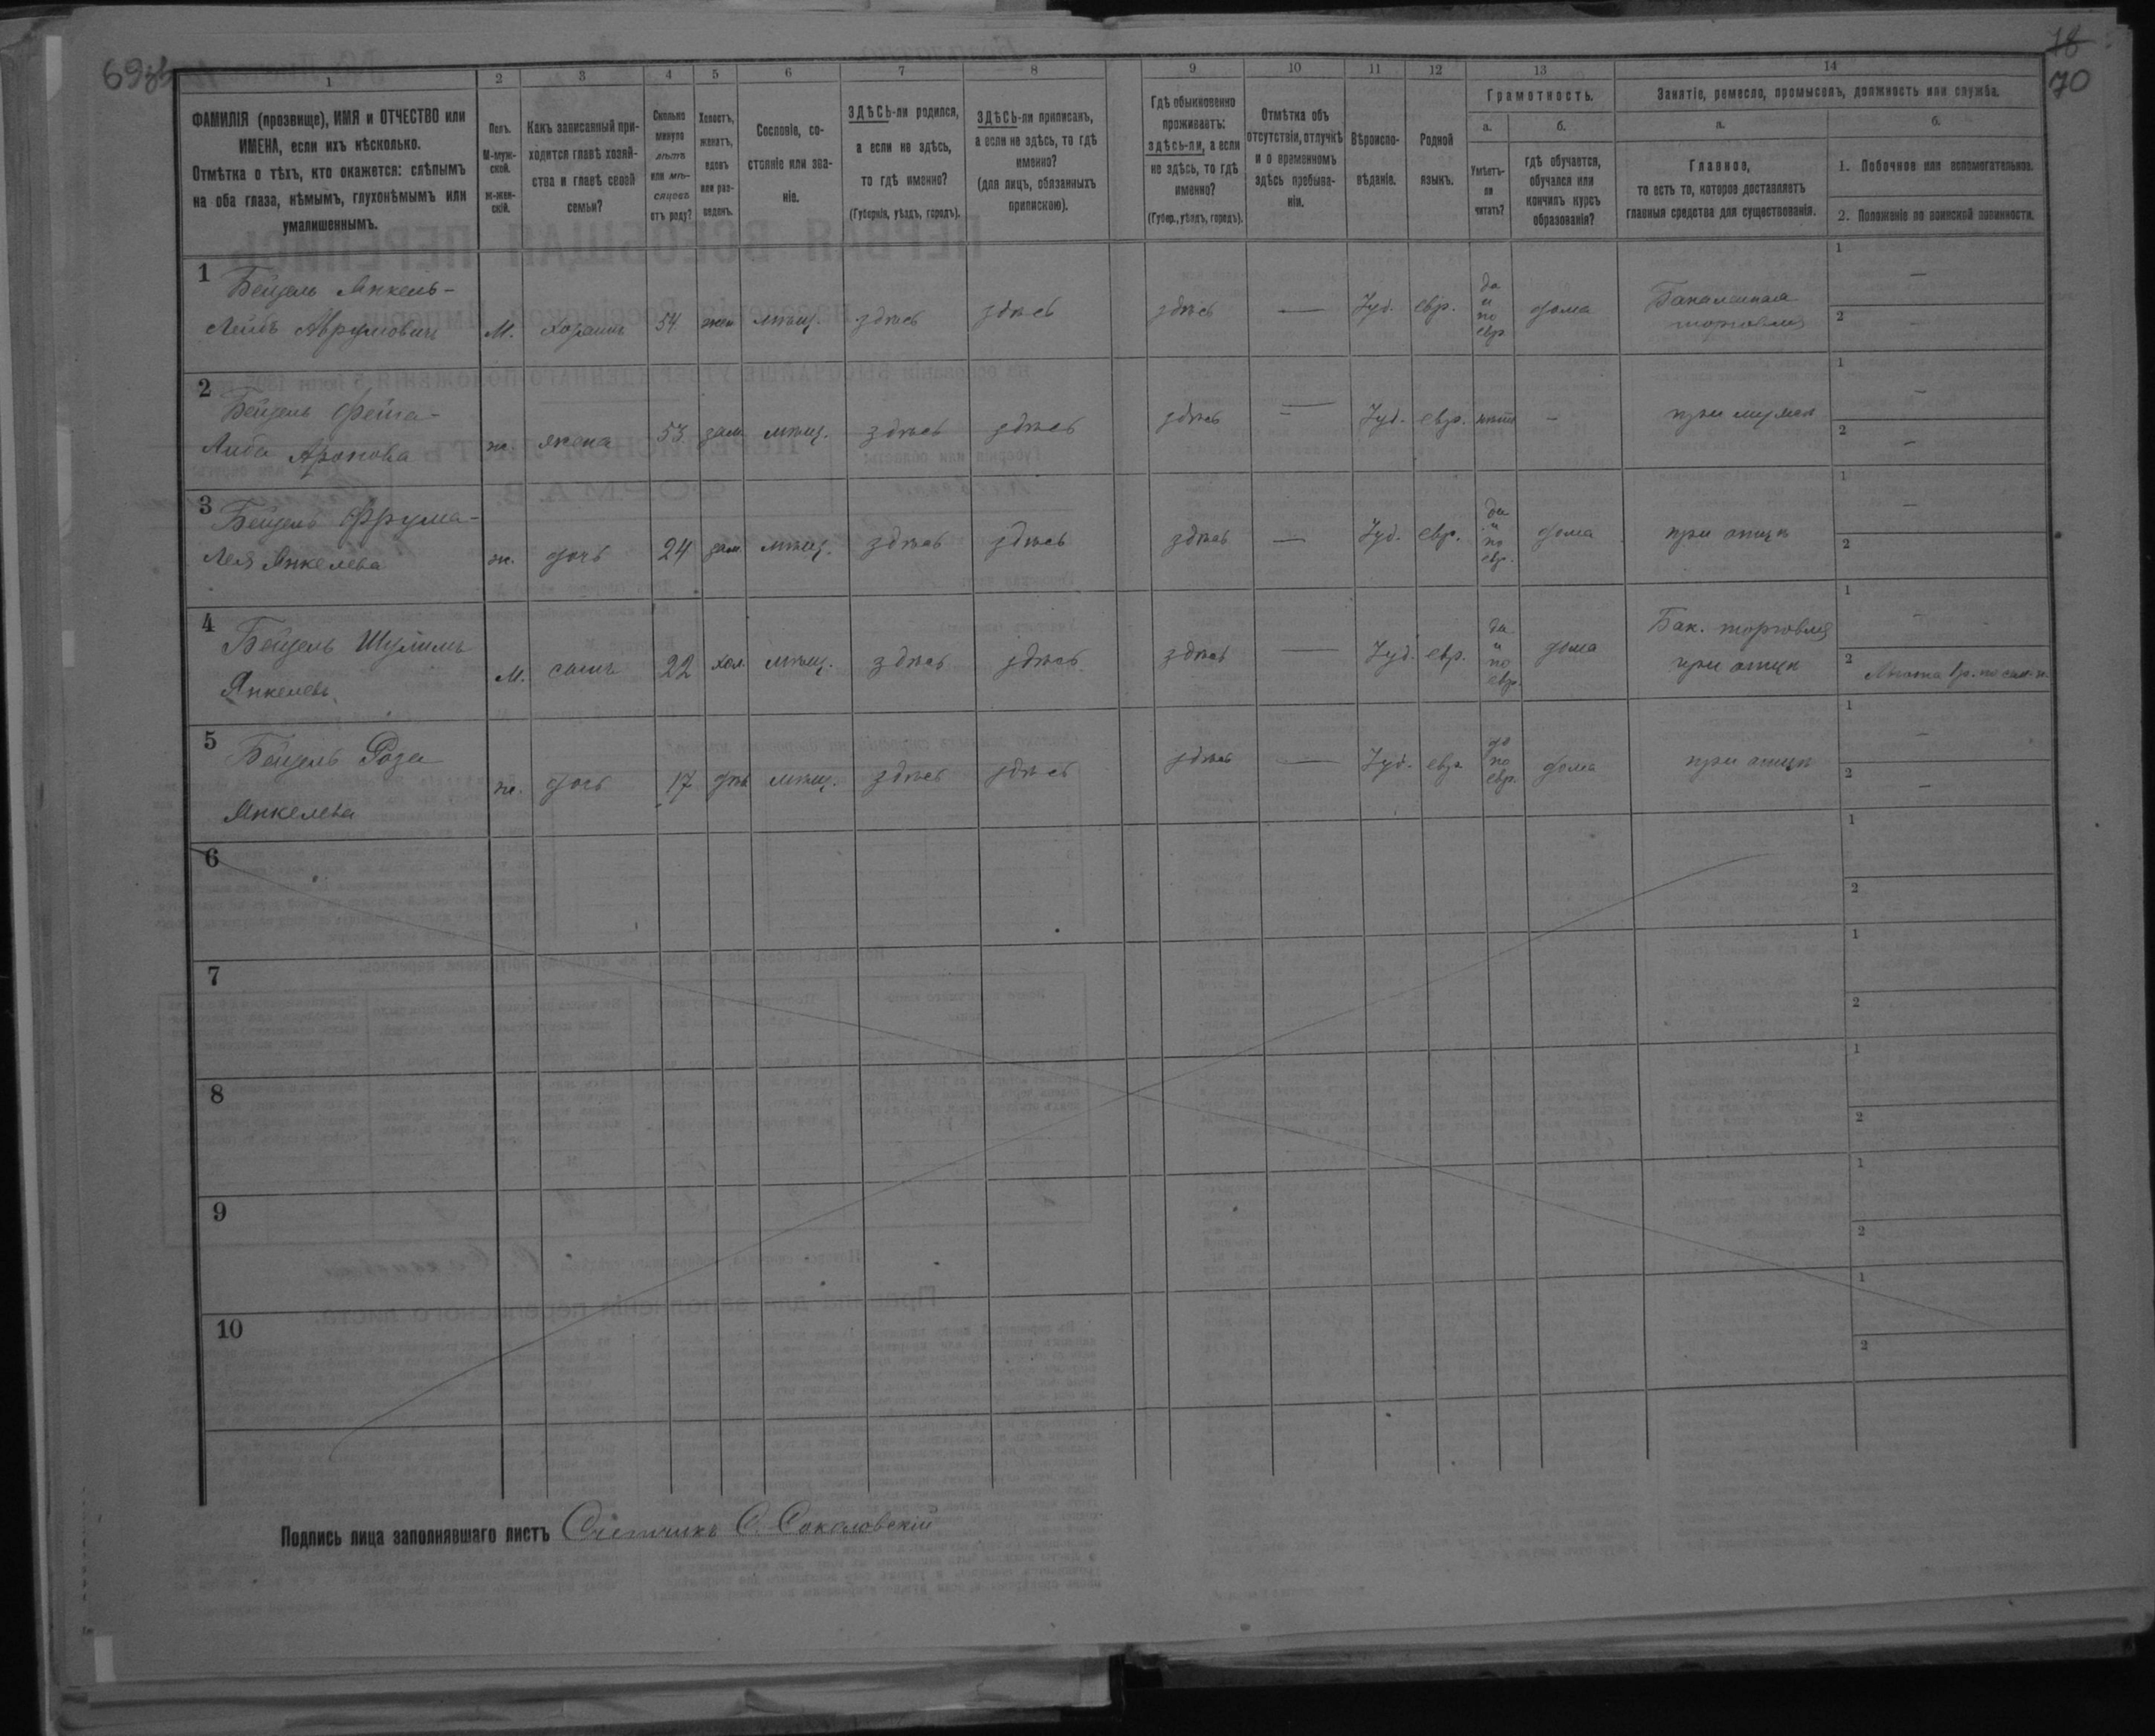 69зв
18
70
1 2 3 4 5 6 7 8 9 10 11 12 13 14
ФАМИЛІЯ (прозвище), ИМЯ и ОТЧЕСТВО или
ИМЕНА, если ихъ нѣсколько.
Отмѣтка о тѣхъ, кто окажется: слѣпымъ
на оба глаза, нѣмымъ, глухонѣмымъ или
умалишеннымъ.
Полъ.
М-муж-
ской.
Ж-жен-
скій.
Какъ записанный при-
ходится главѣ хозяй-
ства и главѣ своей
семьи?
Сколько
минуло
лѣтъ
или мѣ-
сяцевъ
отъ роду?
Холостъ,
женатъ,
вдовъ
или раз-
веденъ.
Сословіе, со-
стояніе или зва-
ніе.
ЗДѢСЬ-ли родился,
а если не здѣсь,
то гдѣ именно?
(Губернія, уѣздъ, городъ).
ЗДѢСЬ-ли приписанъ,
а если не здѣсь, то гдѣ
именно?
(для лицъ, обязанныхъ
припискою).
Гдѣ обыкновенно
проживаетъ:
здѣсь-ли, а если
не здѣсь, то гдѣ
именно?
(Губер., уѣздъ, городъ).
Отмѣтка объ
отсутствіи, отлучкѣ
и о временномъ
здѣсь пребыва-
ніи.
Вѣроиспо-
вѣданіе.
Родной
языкъ.
Грамотность.
а.
Умѣетъ-
ли
читать?
б.
гдѣ обучается,
обучался или
кончилъ курсъ
образованія?
Занятіе, ремесло, промыселъ, должность или служба.
а.
Главное,
то есть то, которое доставляетъ
главныя средства для существованія.
б.
1. Побочное или вспомогательное.
2. Положеніе по воинской повинности.
1 Бейдель Янкель-
Лейбъ Аврумовичъ М. хозяинъ 54 жен мѣщ. здѣсь здѣсь здѣсь — Іуд. евр. да и по евр. дома Бакалейная торговля 1 — 2 —
2 Бейдель Фейга-
Либа Аронова ж. жена 53 зам. мѣщ. здѣсь здѣсь здѣсь — Іуд. евр. нѣтъ — при мужѣ 1 — 2 —
3 Бейдель Фрума-
Лея Янкелева ж. дочь 24 зам. мѣщ. здѣсь здѣсь здѣсь — Іуд. евр. да и по евр. дома при отцѣ 1 — 2
4 Бейдель Шулимъ
Янкелевъ М. сынъ 22 хол. мѣщ. здѣсь здѣсь здѣсь — Іуд. евр. да и по евр. дома Бак. торговля при отцѣ 1 — 2 Льгота
5 Бейдель Роза
Янкелева ж. дочь 17 дѣв мѣщ. здѣсь здѣсь здѣсь — Іуд. евр по евр. дома при отцѣ 1 — 2 —
6 1 2
7 1 2
8 1 2
9 1 2
10 1 2
Подпись лица заполнявшаго листъ Счетчикъ С. Соколовскій